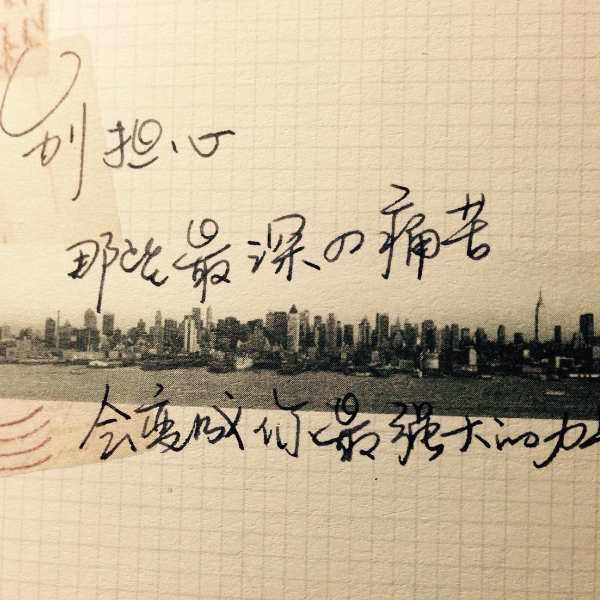 别担心
那些最深の痛苦
会变成你最强大的力